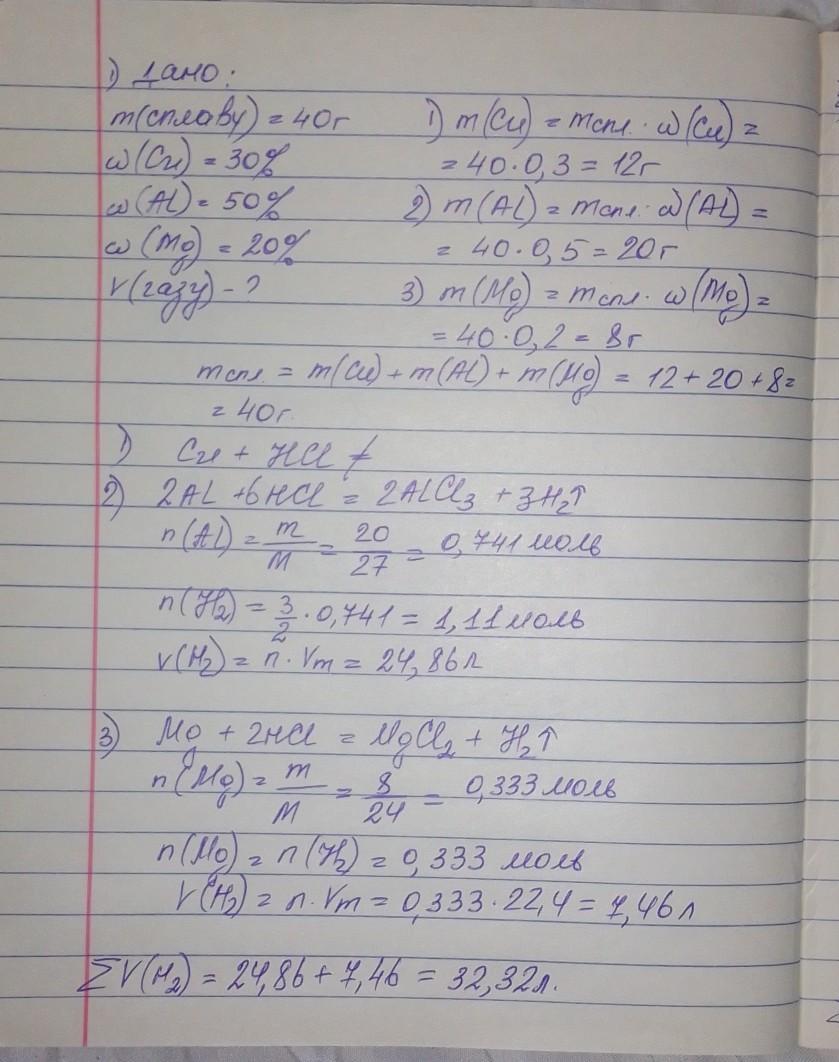 1) Дано:
m(сплаву) = 40г
ω(Cu) = 30%
ω(Al) = 50%
ω(Mg) = 20%
V(газу) - ?
1) m(Cu) = mспл. · ω(Cu) =
= 40·0,3 = 12г
2) m(Al) = mспл. · ω(Al) =
= 40·0,5 = 20г
3) m(Mg) = mспл. · ω(Mg) =
= 40·0,2 = 8г
mспл. = m(Cu) + m(Al) + m(Mg) = 12 + 20 + 8 =
= 40г.
1) Cu + HCl ≠
2) 2Al + 6HCl = 2AlCl₃ + 3H₂↑
n(Al) = m/M = 20/27 = 0,741 моль
n(H₂) = 3/2 · 0,741 = 1,11 моль
V(H₂) = n · Vm = 24,86 л
3) Mg + 2HCl = MgCl₂ + H₂↑
n(Mg) = m/M = 8/24 = 0,333 моль
n(Mg) = n(H₂) = 0,333 моль
V(H₂) = n · Vm = 0,333 · 22,4 = 7,46 л
ΣV(H₂) = 24,86 + 7,46 = 32,32 л.